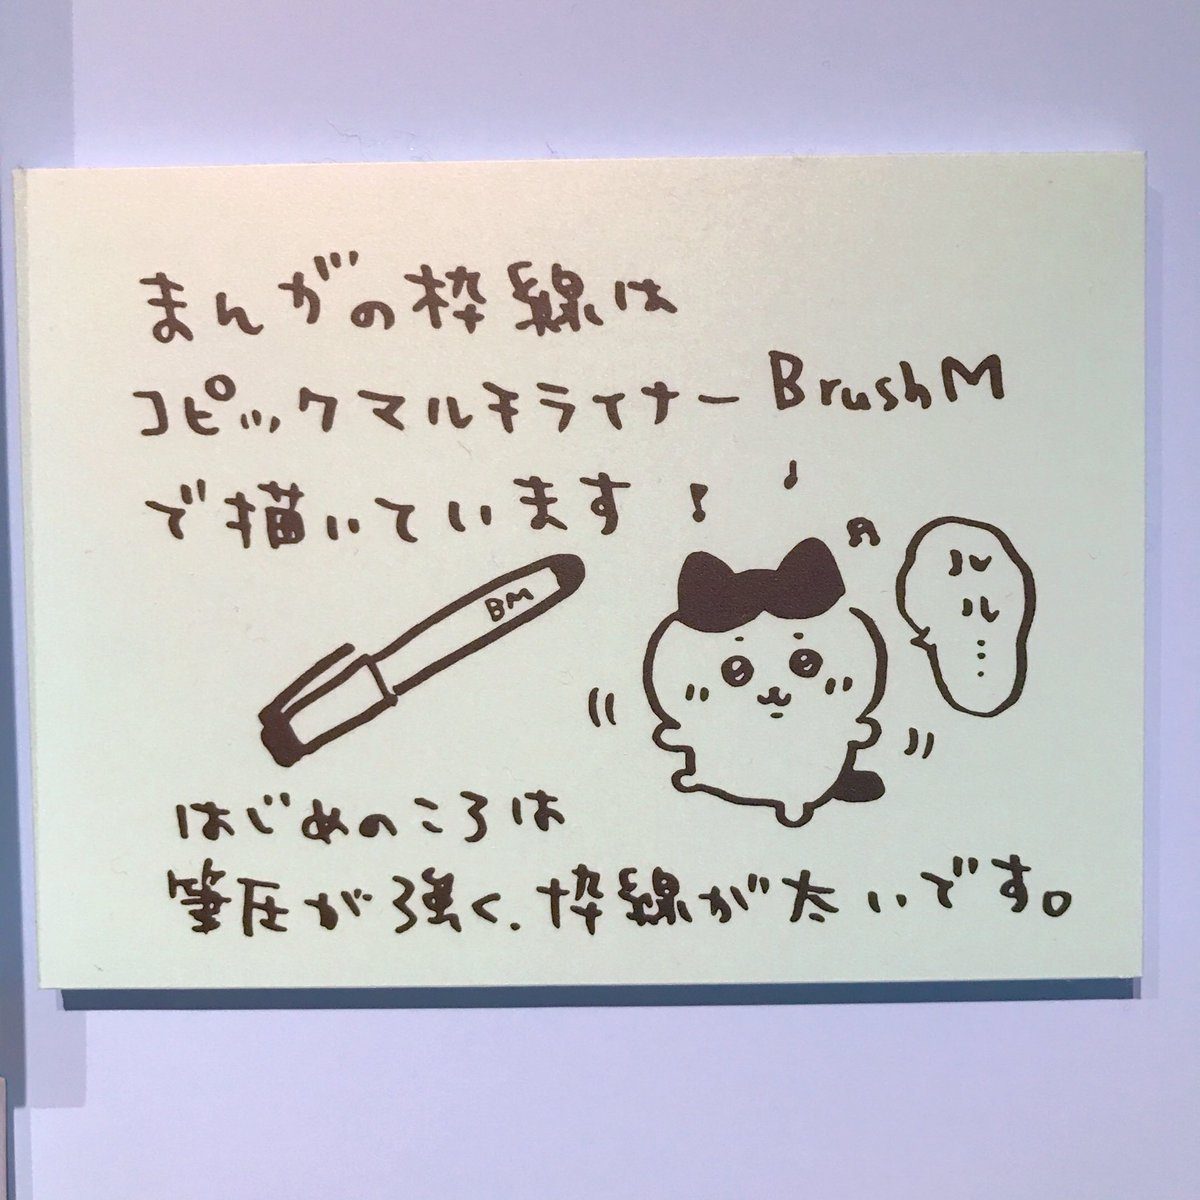 まんがの枠線は
コピックマルチライナーBrushM
で描いています!
BM
ルル…
はじめのころは
筆圧が強く、枠線が太いです。